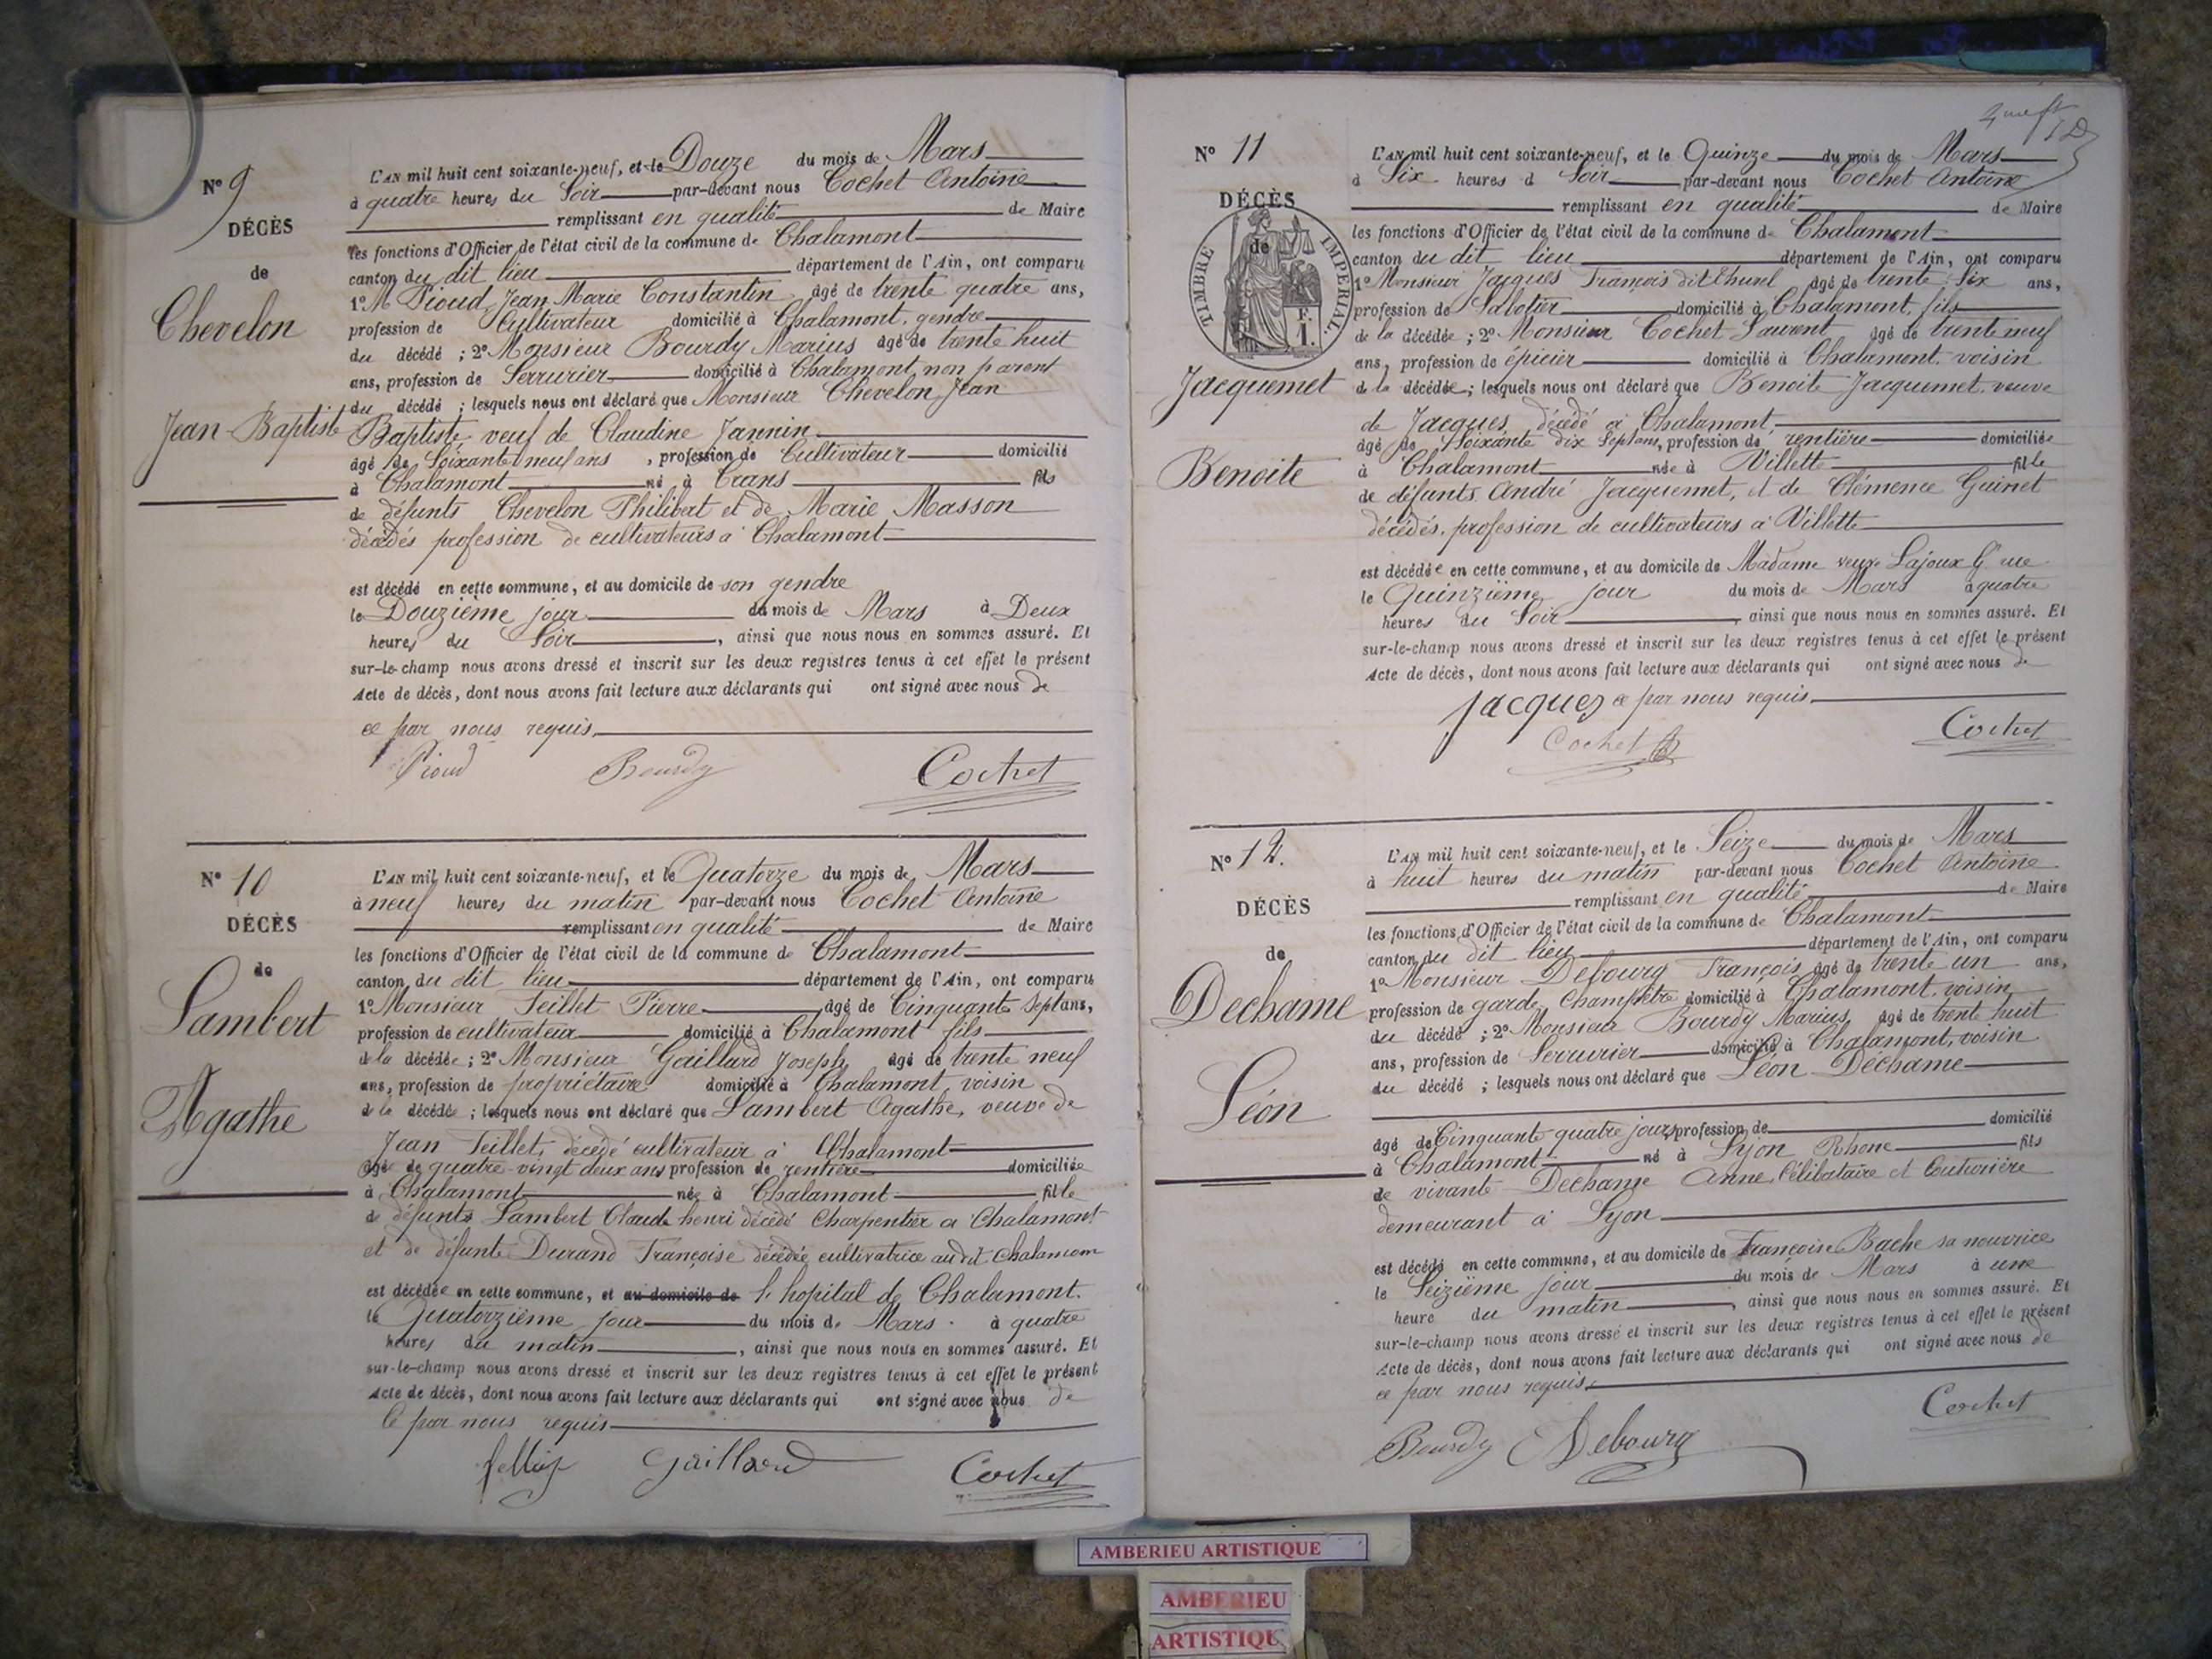 N° 9
DÉCÈS
de
Chevelon
Jean-Baptiste
L'AN mil huit cent soixante-neuf, et le Douze du mois de Mars
à quatre heures du Soir par-devant nous Cochet Antoine
remplissant en qualité de Maire
les fonctions d'Officier de l'état civil de la commune de Chalamont
canton du dit lieu département de l'Ain, ont comparu
1° M Pioud Jean Marie Constantin âgé de trente quatre ans,
profession de Cultivateur domicilié à Chalamont, gendre
du décédé ; 2° Monsieur Bourdy Marius âgé de trente huit
ans, profession de Serrurier domicilié à Chalamont, non parent
du décédé ; lesquels nous ont déclaré que Monsieur Chevelon Jean
Baptiste veuf de Claudine Jannin
âgé de Soixante neuf ans , profession de Cultivateur domicilié
à Chalamont né à Crans fils
de défunts Chevelon Philibert et de Marie Masson
décédés profession de cultivateurs à Chalamont
est décédé en cette commune, et au domicile de son gendre
le Douzième jour du mois de Mars à Deux
heures du Soir , ainsi que nous nous en sommes assuré. Et
sur-le-champ nous avons dressé et inscrit sur les deux registres tenus à cet effet le présent
Acte de décès, dont nous avons fait lecture aux déclarants qui ont signé avec nous de
ce par nous requis
Pioud Bourdy Cochet
N° 10
DÉCÈS
de
Lambert
Agathe
L'AN mil huit cent soixante-neuf, et le Quatorze du mois de Mars
à neuf heures du matin par-devant nous Cochet Antoine
remplissant en qualité de Maire
les fonctions d'Officier de l'état civil de la commune de Chalamont
canton du dit lieu département de l'Ain, ont comparu
1° Monsieur Teillet Pierre âgé de Cinquante Sept ans,
profession de cultivateur domicilié à Chalamont fils
de la décédée ; 2° Monsieur Gaillard Joseph âgé de trente neuf
ans, profession de propriétaire domicilié à Chalamont, voisin
de la décédée ; lesquels nous ont déclaré que Lambert Agathe, veuve de
Jean Teillet, décédé cultivateur à Chalamont
âgé de quatre-vingt deux ans profession de rentière domiciliée
à Chalamont née à Chalamont fille
de défunts Lambert Claude henri décédé Charpentier à Chalamont
et de défunte Durand Françoise décédée cultivatrice audit Chalamon
est décédée en cette commune, et au domicile de l'hopital de Chalamont.
le Quatorzième jour du mois de Mars à quatre
heures du matin , ainsi que nous nous en sommes assuré. Et
sur-le-champ nous avons dressé et inscrit sur les deux registres tenus à cet effet le présent
Acte de décès, dont nous avons fait lecture aux déclarants qui ont signé avec nous de
Ce par nous requis
Gaillard Cochet
N° 11
DÉCÈS
de
TIMBRE IMPÉRIAL
F.
1.
Jacquemet
Benoite
L'AN mil huit cent soixante-neuf, et le Quinze du mois de Mars
à Six heures d Soir par-devant nous Cochet Antoine
remplissant en qualité de Maire
les fonctions d'Officier de l'état civil de la commune de Chalamont
canton du dit lieu département de l'Ain, ont comparu
1° Monsieur Jacques François dit âgé de trente Six ans,
profession de Sabotier domicilié à Chalamont, fils
de la décédée ; 2° Monsieur Cochet Laurent âgé de trente neuf
ans, profession de épicier domicilié à Chalamont, voisin
de la décédée ; lesquels nous ont déclaré que Benoite Jacquemet, veuve
de Jacques, décédé à Chalamont,
âgé de Soixante dix Sept ans, profession de rentière domiciliée
à Chalamont née à Villette fille
de défunts André Jacquemet, et de Clémence Guinet
décédés, profession de cultivateurs à Villette
est décédée en cette commune, et au domicile de Madame veuve Lajoux G rue
le Quinzième jour du mois de Mars à quatre
heures du Soir , ainsi que nous nous en sommes assuré. Et
sur-le-champ nous avons dressé et inscrit sur les deux registres tenus à cet effet le présent
Acte de décès, dont nous avons fait lecture aux déclarants qui ont signé avec nous de
Jacques ce par nous requis
Cochet Cochet
N° 12.
DÉCÈS
de
Dechame
Léon
L'AN mil huit cent soixante-neuf, et le Seize du mois de Mars
à huit heures du matin par-devant nous Cochet Antoine
remplissant en qualité de Maire
les fonctions d'Officier de l'état civil de la commune de Chalamont
canton du dit lieu département de l'Ain, ont comparu
1° Monsieur Debourg François âgé de trente un ans,
profession de garde Champêtre domicilié à Chalamont, voisin
du décédé ; 2° Monsieur Bourdy Marius âgé de trente huit
ans, profession de Serrurier domicilié à Chalamont, voisin
du décédé ; lesquels nous ont déclaré que Léon Dechame
âgé de Cinquante quatre jours profession de domicilié
à Chalamont né à Lyon Rhone fils
de vivante Dechame Anne, Célibataire et Couturière
demeurant à Lyon
est décédé en cette commune, et au domicile de Françoise Bache sa nourrice
le Seizième jour du mois de Mars à une
heure du matin , ainsi que nous nous en sommes assuré. Et
sur-le-champ nous avons dressé et inscrit sur les deux registres tenus à cet effet le présent
Acte de décès, dont nous avons fait lecture aux déclarants qui ont signé avec nous de
ce par nous requis
Bourdy Debourg Cochet
AMBERIEU ARTISTIQUE
AMBERIEU
ARTISTIQU